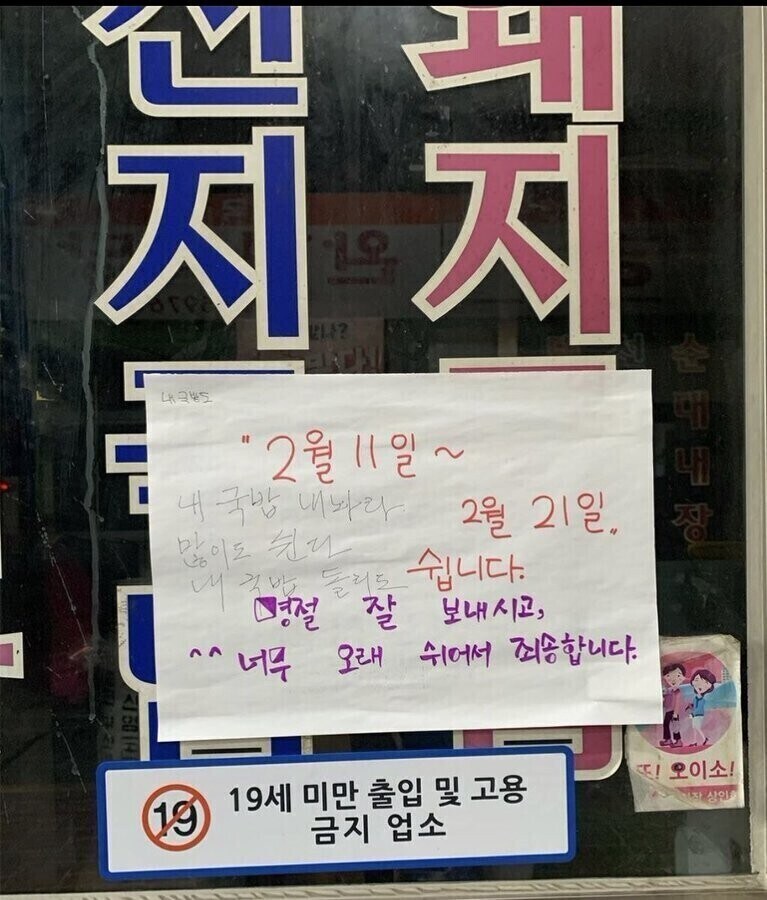 선지국밥
돼지국밥
순대내장
내 국밥도
"2월 11일 ~
2월 21일"
쉽니다.
내 국밥 내놔라
많이도 쉰다
내 국밥 돌려도
명절 잘 보내시고,
^^ 너무 오래 쉬어서 죄송합니다.
또! 오이소!
19
19세 미만 출입 및 고용
금지 업소